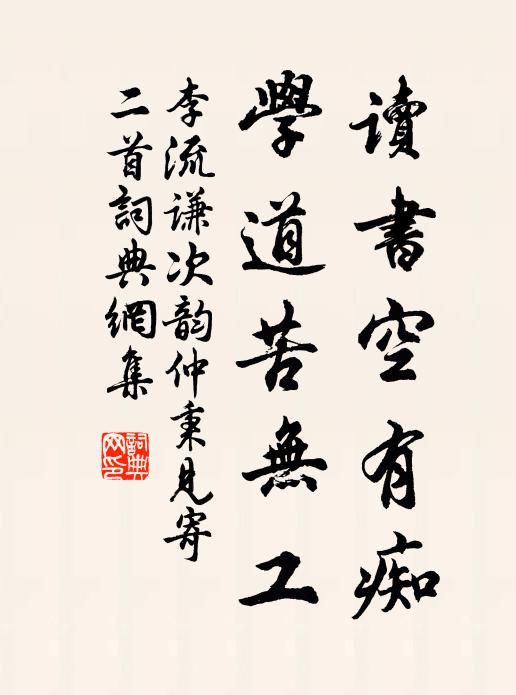 讀書空有痴
學道苦無工
李流谦次韵仲秉見寄
二首詞典網集
詞典
网印